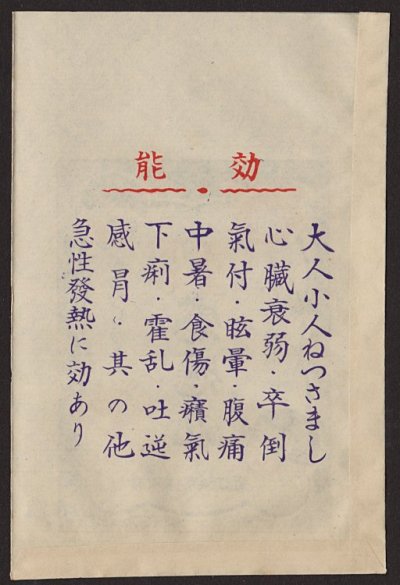 効能
大人小人ねつさまし
心臓衰弱・卒倒
氣付・眩暈・腹痛
中暑・食傷・癪氣
下痢・霍乱・吐逆
感冒・其の他
急性發熱に効あり